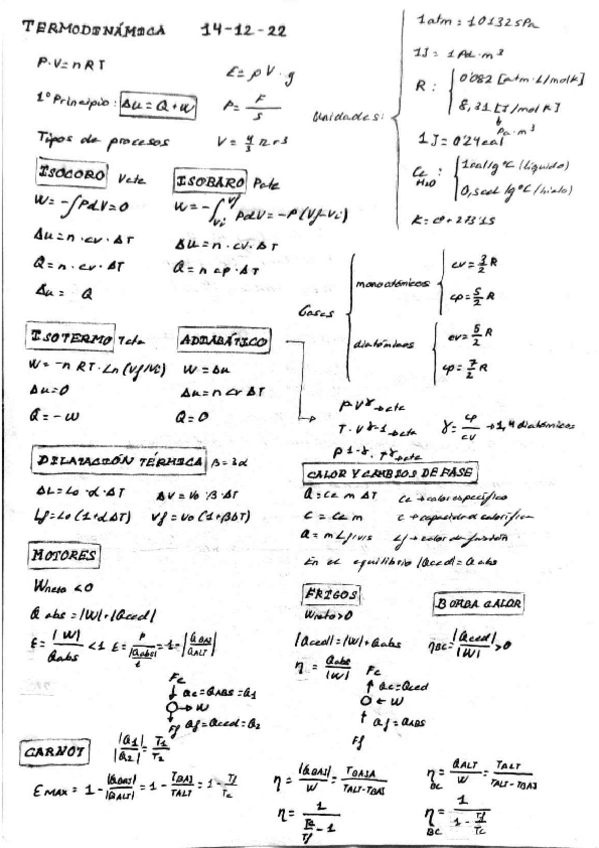 TERMODINÁMICA 14-12-22
P·V=nRT
E=ρV·g
1º Principio: Δu=Q+W
P=F/S
Tipos de procesos
V=4/3 π r³
Unidades:
1atm = 101325Pa
1J = 1Pa·m³
R: 0'082 [atm·L/molK]
8,31 [J/molK]
Pa·m³
1J = 0'24cal
Ce H2O: 1cal/gºC (líquido)
0,5cal/gºC (hielo)
K = Cº+273'15
ISOCORO Vcte
W=-∫PdV=0
Δu=n·cv·ΔT
Q=n·cv·ΔT
Δu= Q
ISOBARO Pcte
W=-∫Vi Vf PdV=-P(Vf-Vi)
Δu=n·cv·ΔT
Q=n cp·ΔT
Gases
monoatómicos
cv=3/2 R
cp=5/2 R
diatómicos
cv=5/2 R
cp=7/2 R
ISOTERMO Tcte
W=-nRT·Ln(Vf/Vi)
Δu=0
Q=-W
ADIABÁTICO
W=Δu
Δu=ncvΔT
Q=0
P·Vᵞ→cte
T·Vᵞ⁻¹→cte
P¹⁻ᵞ·Tᵞ→cte
γ=cp/cv →1,4 diatómicos
DILATACIÓN TÉRMICA β=3α
ΔL=Lo·α·ΔT ΔV=Vo·β·ΔT
Lf=Lo(1+αΔT) Vf=Vo(1+βΔT)
CALOR Y CAMBIOS DE FASE
Q=ce m ΔT ce→calor específico
C=ce m C→capacidad calorífica
Q=mLf/vs Lf→calor de fusión
En el equilibrio |Qced|=Qabs
MOTORES
Wneto<0
Qabs=|W|+|Qced|
ε=|W|/Qabs<1 ε=P/(|Qabs|/t)=1-|QBAJ/QALT|
Fc
↓ Qc=QABS=Q1
→W
↓ Qf=Qced=Q2
Ff
FRIGOS
Wneto>0
|Qced|=|W|+Qabs
η=Qabs/|W|
Fc
↑ Qc=Qced
←W
↑ Qf=QABS
Ff
BOMBA CALOR
ηBC=|Qced|/|W|>0
CARNOT |Q1|/|Q2|=T1/T2
εMAX=1-|QBAJ|/|QALT|=1-TBAJ/TALT=1-Tf/Tc
η=|QBAJ|/W=TBAJA/(TALT-TBAJ)
η=1/(Tc/Tf-1)
ηBC=QALT/W=TALT/(TALT-TBAJ)
ηBC=1/(1-Tf/Tc)